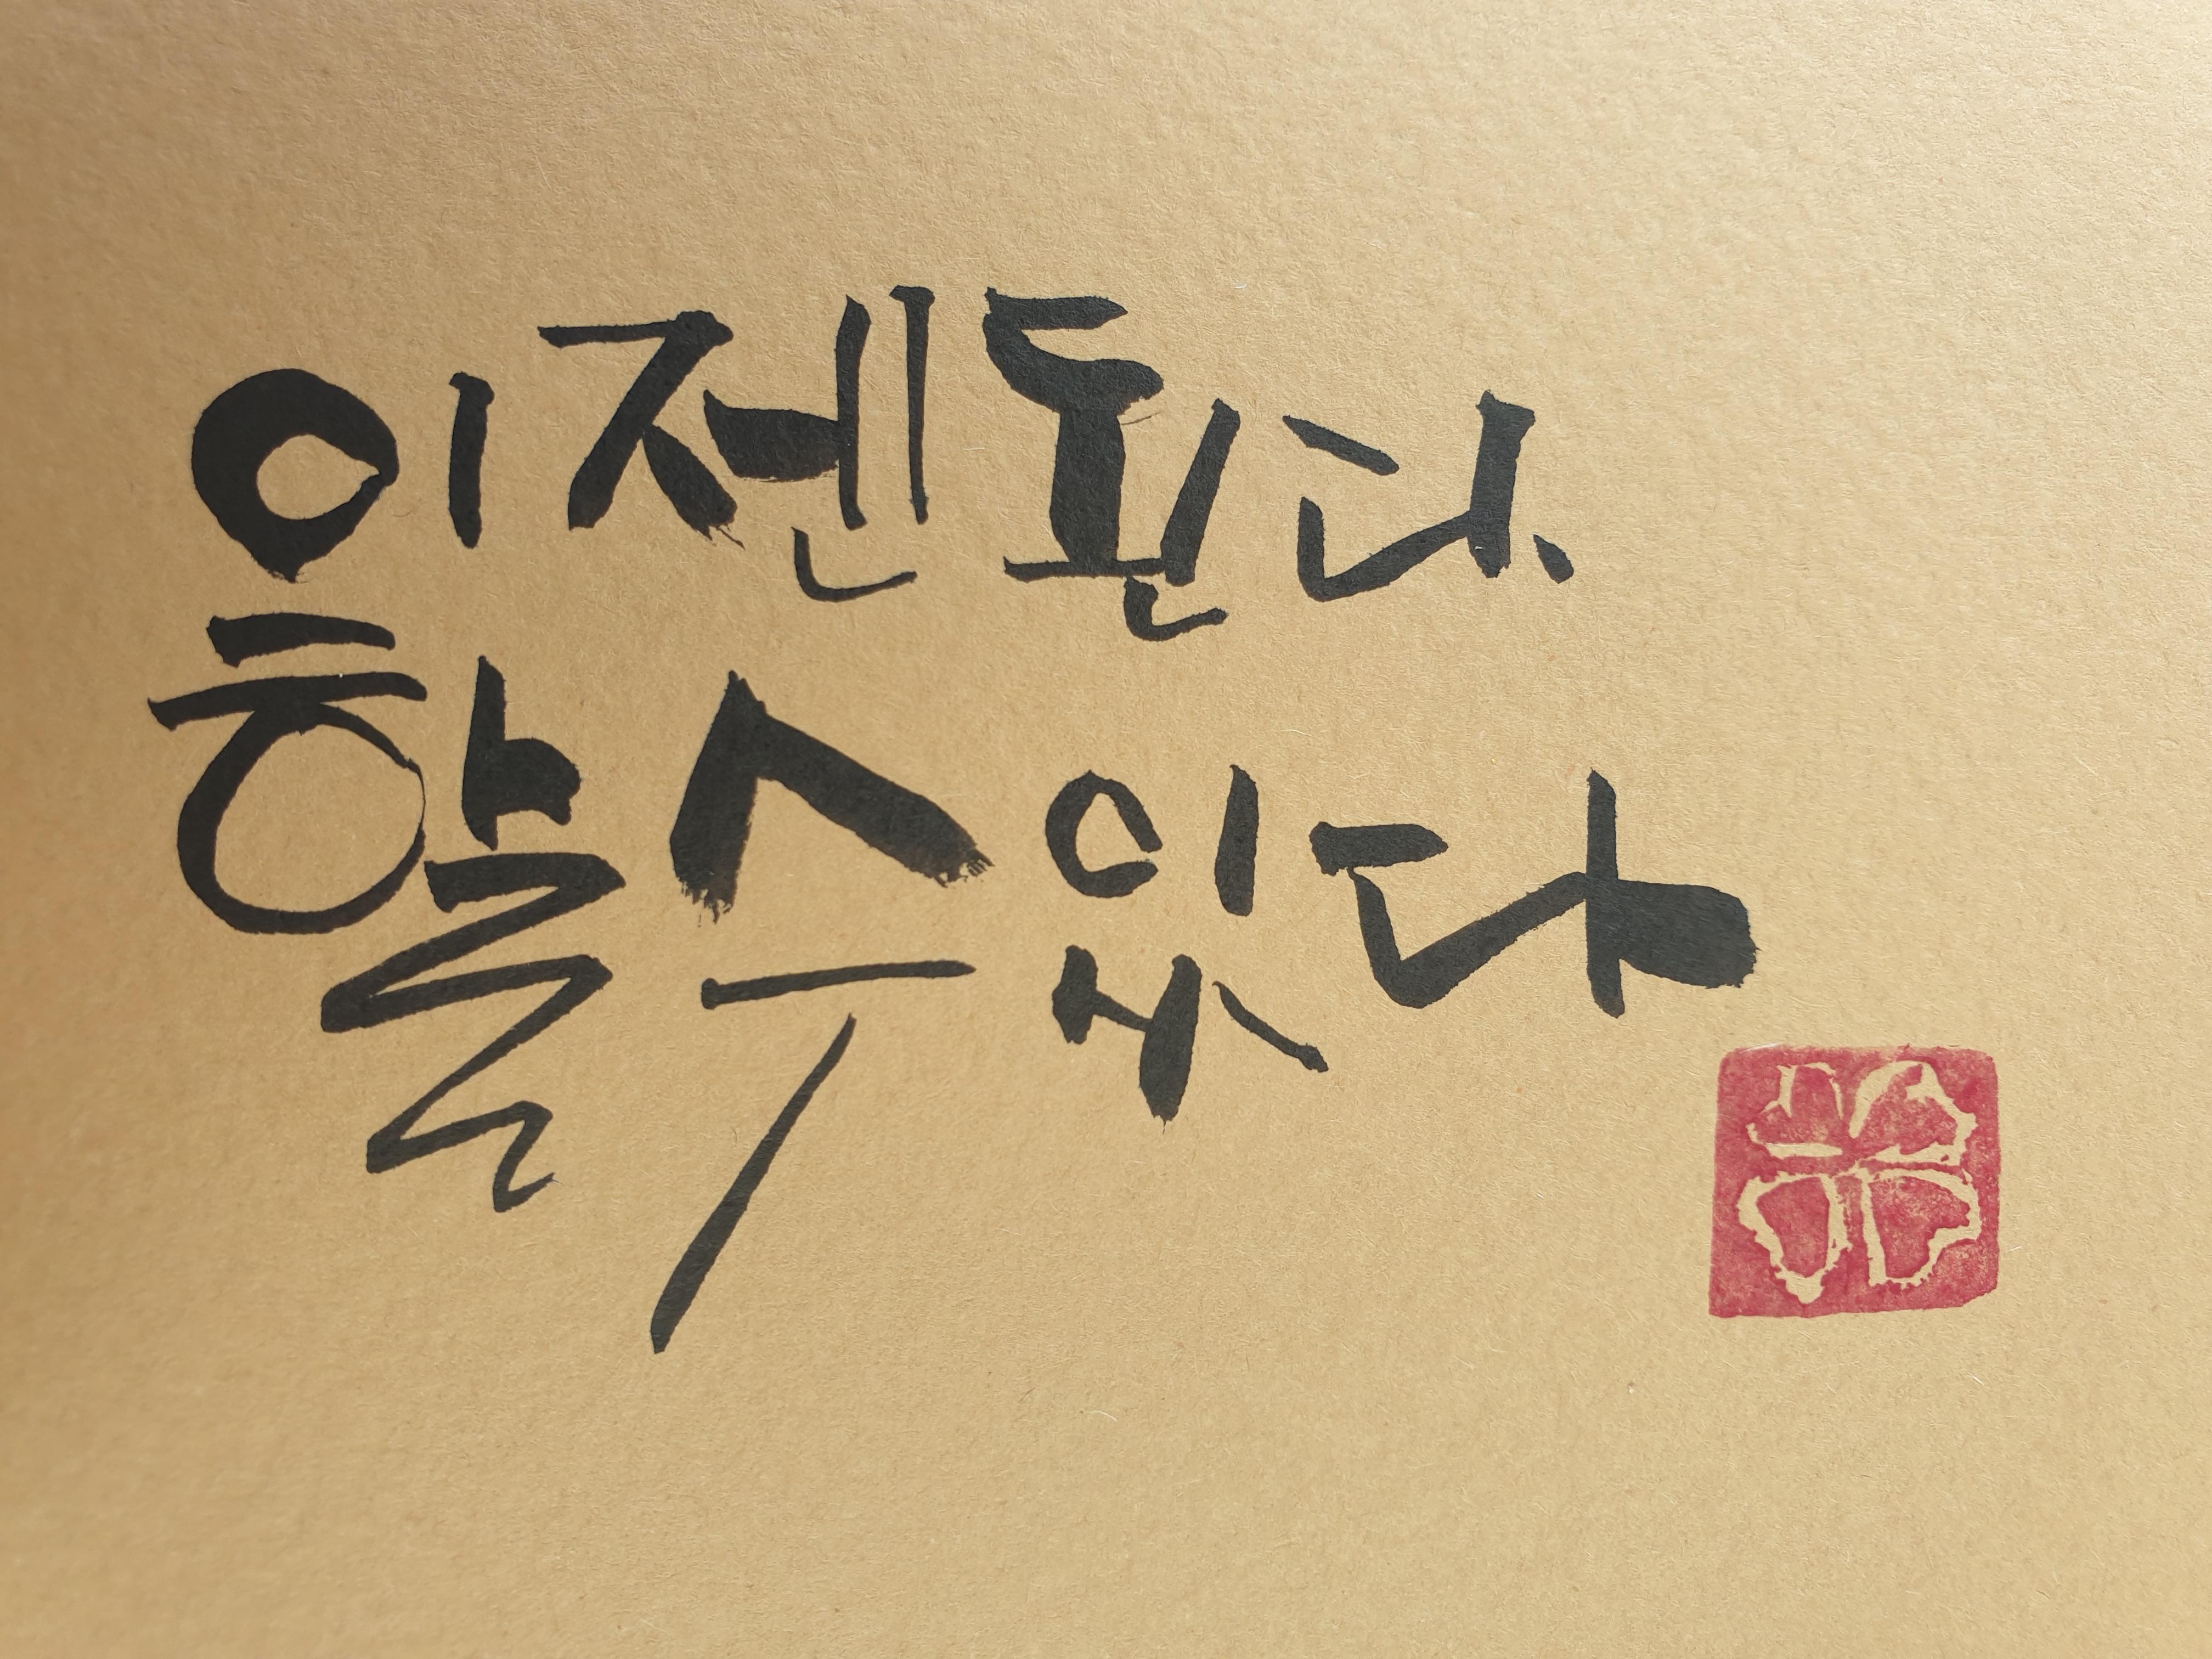 이젠 된다.
할 수 있다